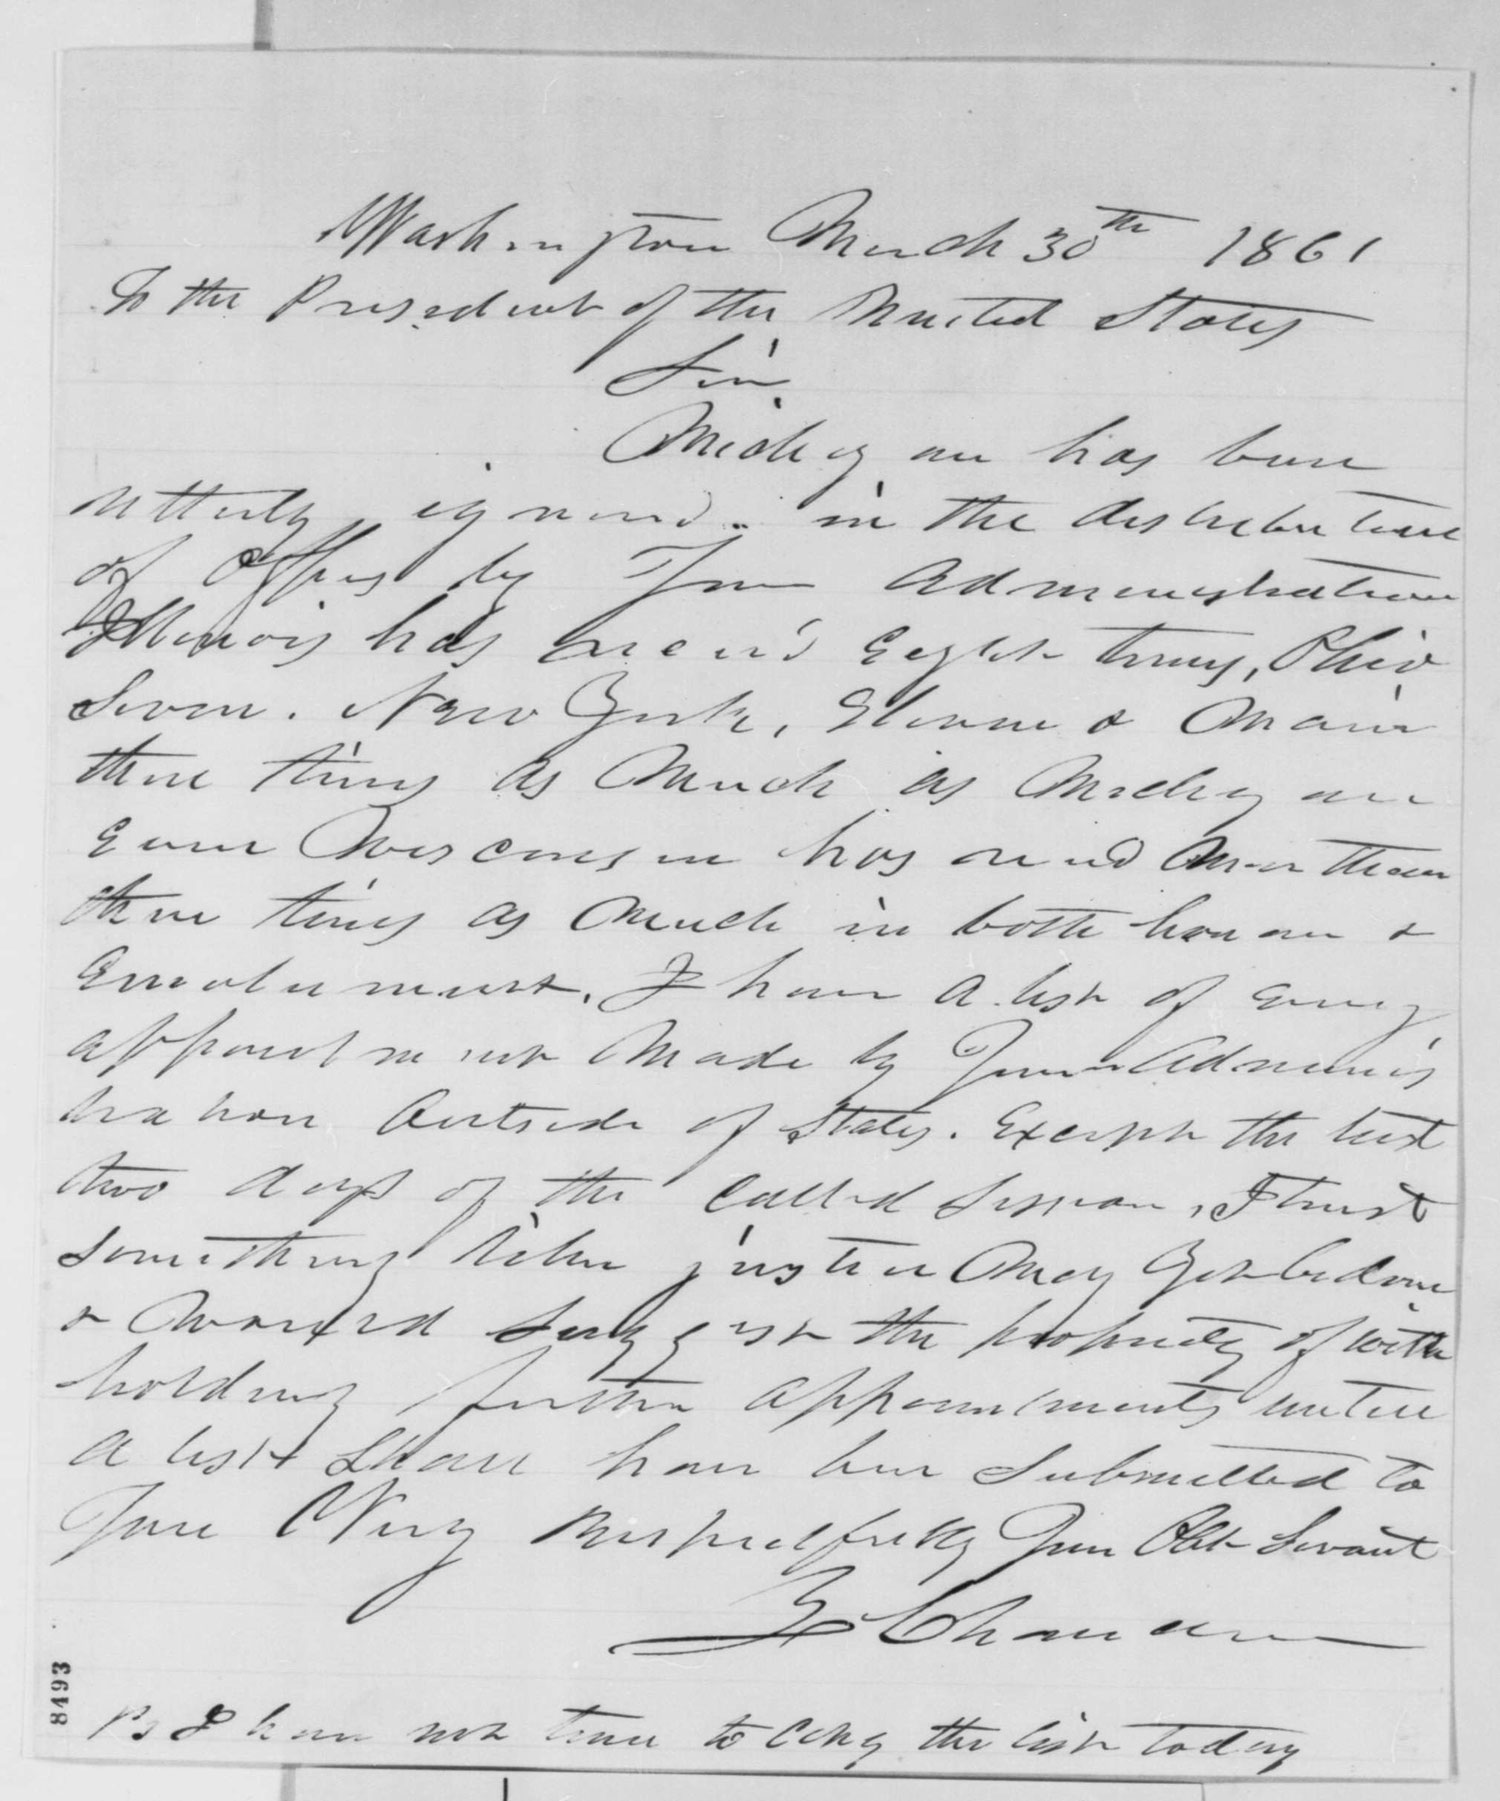 Washington March 30th 1861
To the President of the United States
Sir
Michigan has been
utterly ignored in the distribution
of Offices by Your Administration
Illinois has rec'd Eight times, Ohio
Seven. New York, Eleven & Maine
three times as Much as Michigan
Even Wisconsin has rec'd More than
three times as Much in both honor &
Emolument. I have a list of every
appointment Made by Your Adminis
tration Outside of States. Except the last
two days of the Called Session, I trust
something like justice May Yet be done
& Would Suggest the propriety of with
holding further appointments until
a list Shall have been Submitted to
You Very Respectfully Your Obt Servant
Z Chandler
Ps I have not time to Copy the list today
8493